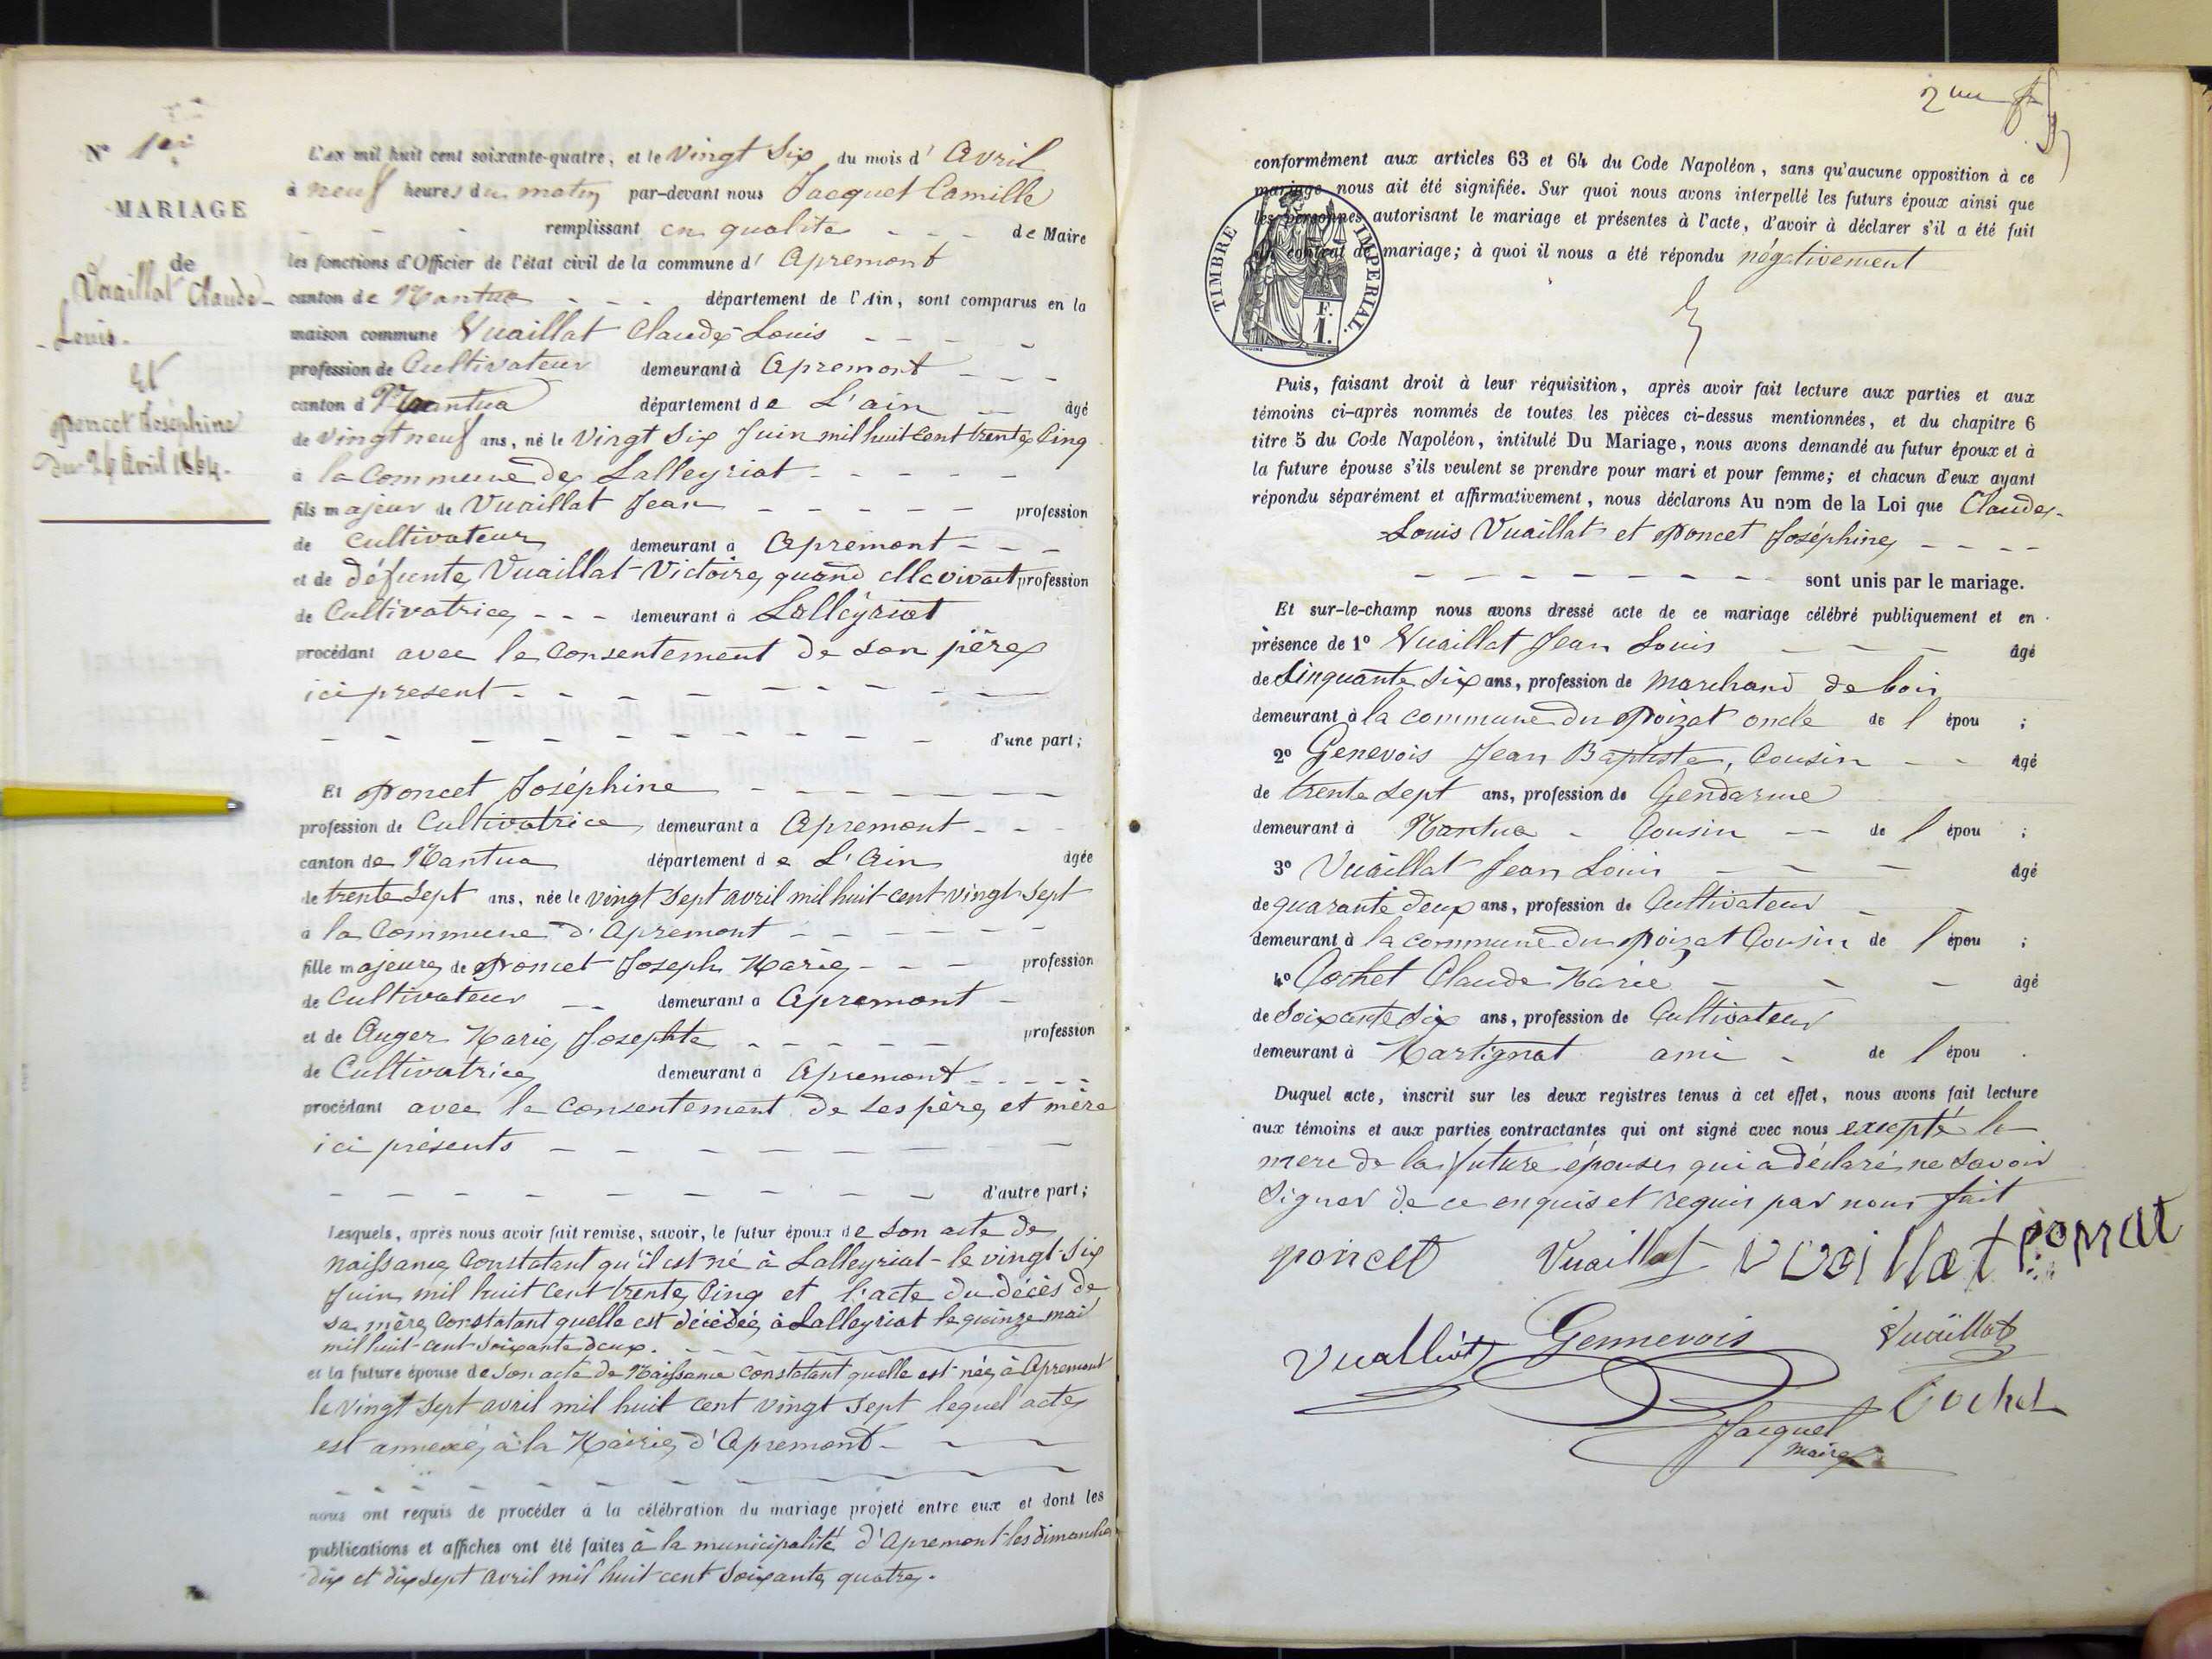 N° 1er
MARIAGE
de
Vuaillat Claude-
-Louis.
Et
Poncet Joséphine
Du 26 Avril 1864.
L'an mil huit cent soixante-quatre, et le Vingt Six du mois d' Avril
à neuf heures du matin par-devant nous Jacquet Camille
remplissant en qualité - - - de Maire
les fonctions d'Officier de l'état civil de la commune d' Apremont
canton de Mantua - - - département de l'Ain, sont comparus en la
maison commune Vuaillat Claude-Louis - - - -
profession de Cultivateur demeurant à Apremont - - -
canton d Mantua département de L'ain - âgé
de Vingt neuf ans, né le Vingt Six Juin mil huit Cent trente Cinq
à la Commune de Lalleyriat - - - - -
fils majeur de Vuaillat Jean - - - - - profession
de Cultivateur demeurant à Apremont - - -
et de défunte Vuaillat Victoire, quand elle vivait profession
de Cultivatrice - - - demeurant à Lalleyriat
procédant avec le Consentement de son père
ici présent - - - - - - - - -
- - - - - - - - - d'une part;
Et Poncet Joséphine - - - - - - -
profession de Cultivatrice demeurant à Apremont - - -
canton de Mantua département de L'Ain âgée
de trente Sept ans, née le vingt Sept avril mil huit cent vingt Sept
à la Commune d'Apremont - - - - - -
fille majeure de Poncet Joseph Marie - - - profession
de Cultivateur - - demeurant à Apremont -
et de Auger Marie Josephte - - - - - profession
de Cultivatrice demeurant à Apremont - - - - -
procédant avec le Consentement de ses père et mère
ici présents - - - - - - - -
- - - - - - - - - d'autre part;
Lesquels, après nous avoir fait remise, savoir, le futur époux de Son acte de
naissance Constatant qu'il est né à Lalleyriat - le vingt-Six
Juin mil huit Cent trente Cinq et l'acte du décès de
sa mère Constatant quelle est décédée à Lalleyriat le quinze mai
mil huit-cent-soixante deux. - - - -
et la future épouse de Son acte de Naissance constatant quelle est née à Apremont
le Vingt Sept avril mil huit cent vingt Sept lequel acte
est annexé à la Mairie d'Apremont - - -
nous ont requis de procéder à la célébration du mariage projeté entre eux et dont les
publications et affiches ont été faites à la municipalité d'Apremont les dimanche
dix et dix sept avril mil huit cent Soixante quatre.
2me
conformément aux articles 63 et 64 du Code Napoléon, sans qu'aucune opposition à ce
mariage nous ait été signifiée. Sur quoi nous avons interpellé les futurs époux ainsi que
les personnes autorisant le mariage et présentes à l'acte, d'avoir à déclarer s'il a été fait
un contrat de mariage; à quoi il nous a été répondu négativement
TIMBRE IMPERIAL.
F.
1.
Puis, faisant droit à leur réquisition, après avoir fait lecture aux parties et aux
témoins ci-après nommés de toutes les pièces ci-dessus mentionnées, et du chapitre 6
titre 5 du Code Napoléon, intitulé Du Mariage, nous avons demandé au futur époux et à
la future épouse s'ils veulent se prendre pour mari et pour femme; et chacun d'eux ayant
répondu séparément et affirmativement, nous déclarons Au nom de la Loi que Claude-
-Louis Vuaillat et Poncet Joséphine - - - -
- - - - - - - - - sont unis par le mariage.
Et sur-le-champ nous avons dressé acte de ce mariage célébré publiquement et en
présence de 1° Vuaillat Jean Louis - - - âgé
de Cinquante Six ans, profession de Marchand de bois
demeurant à la commune du Poizat oncle de l épou ;
2° Genevois Jean Baptiste, Cousin - - âgé
de trente Sept ans, profession de Gendarme
demeurant à Mantua - Cousin -- de l épou ;
3° Vuaillat Jean Louis - - - âgé
de quarante deux ans, profession de Cultivateur - -
demeurant à la commune du Poizat Cousin de l épou ;
4° Cochet Claude Marie - - - âgé
de Soixante Six ans, profession de Cultivateur
demeurant à Martignat ami - de l épou .
Duquel acte, inscrit sur les deux registres tenus à cet effet, nous avons fait lecture
aux témoins et aux parties contractantes qui ont signé avec nous excepté la
mère de la future épouse qui a déclaré ne Savoir
Signer de ce enquis et requis par nous fait
poncet Vuaillat vuaillat
Vuailliat Gennevois Vuaillat
Cochet
Jacquet
maire